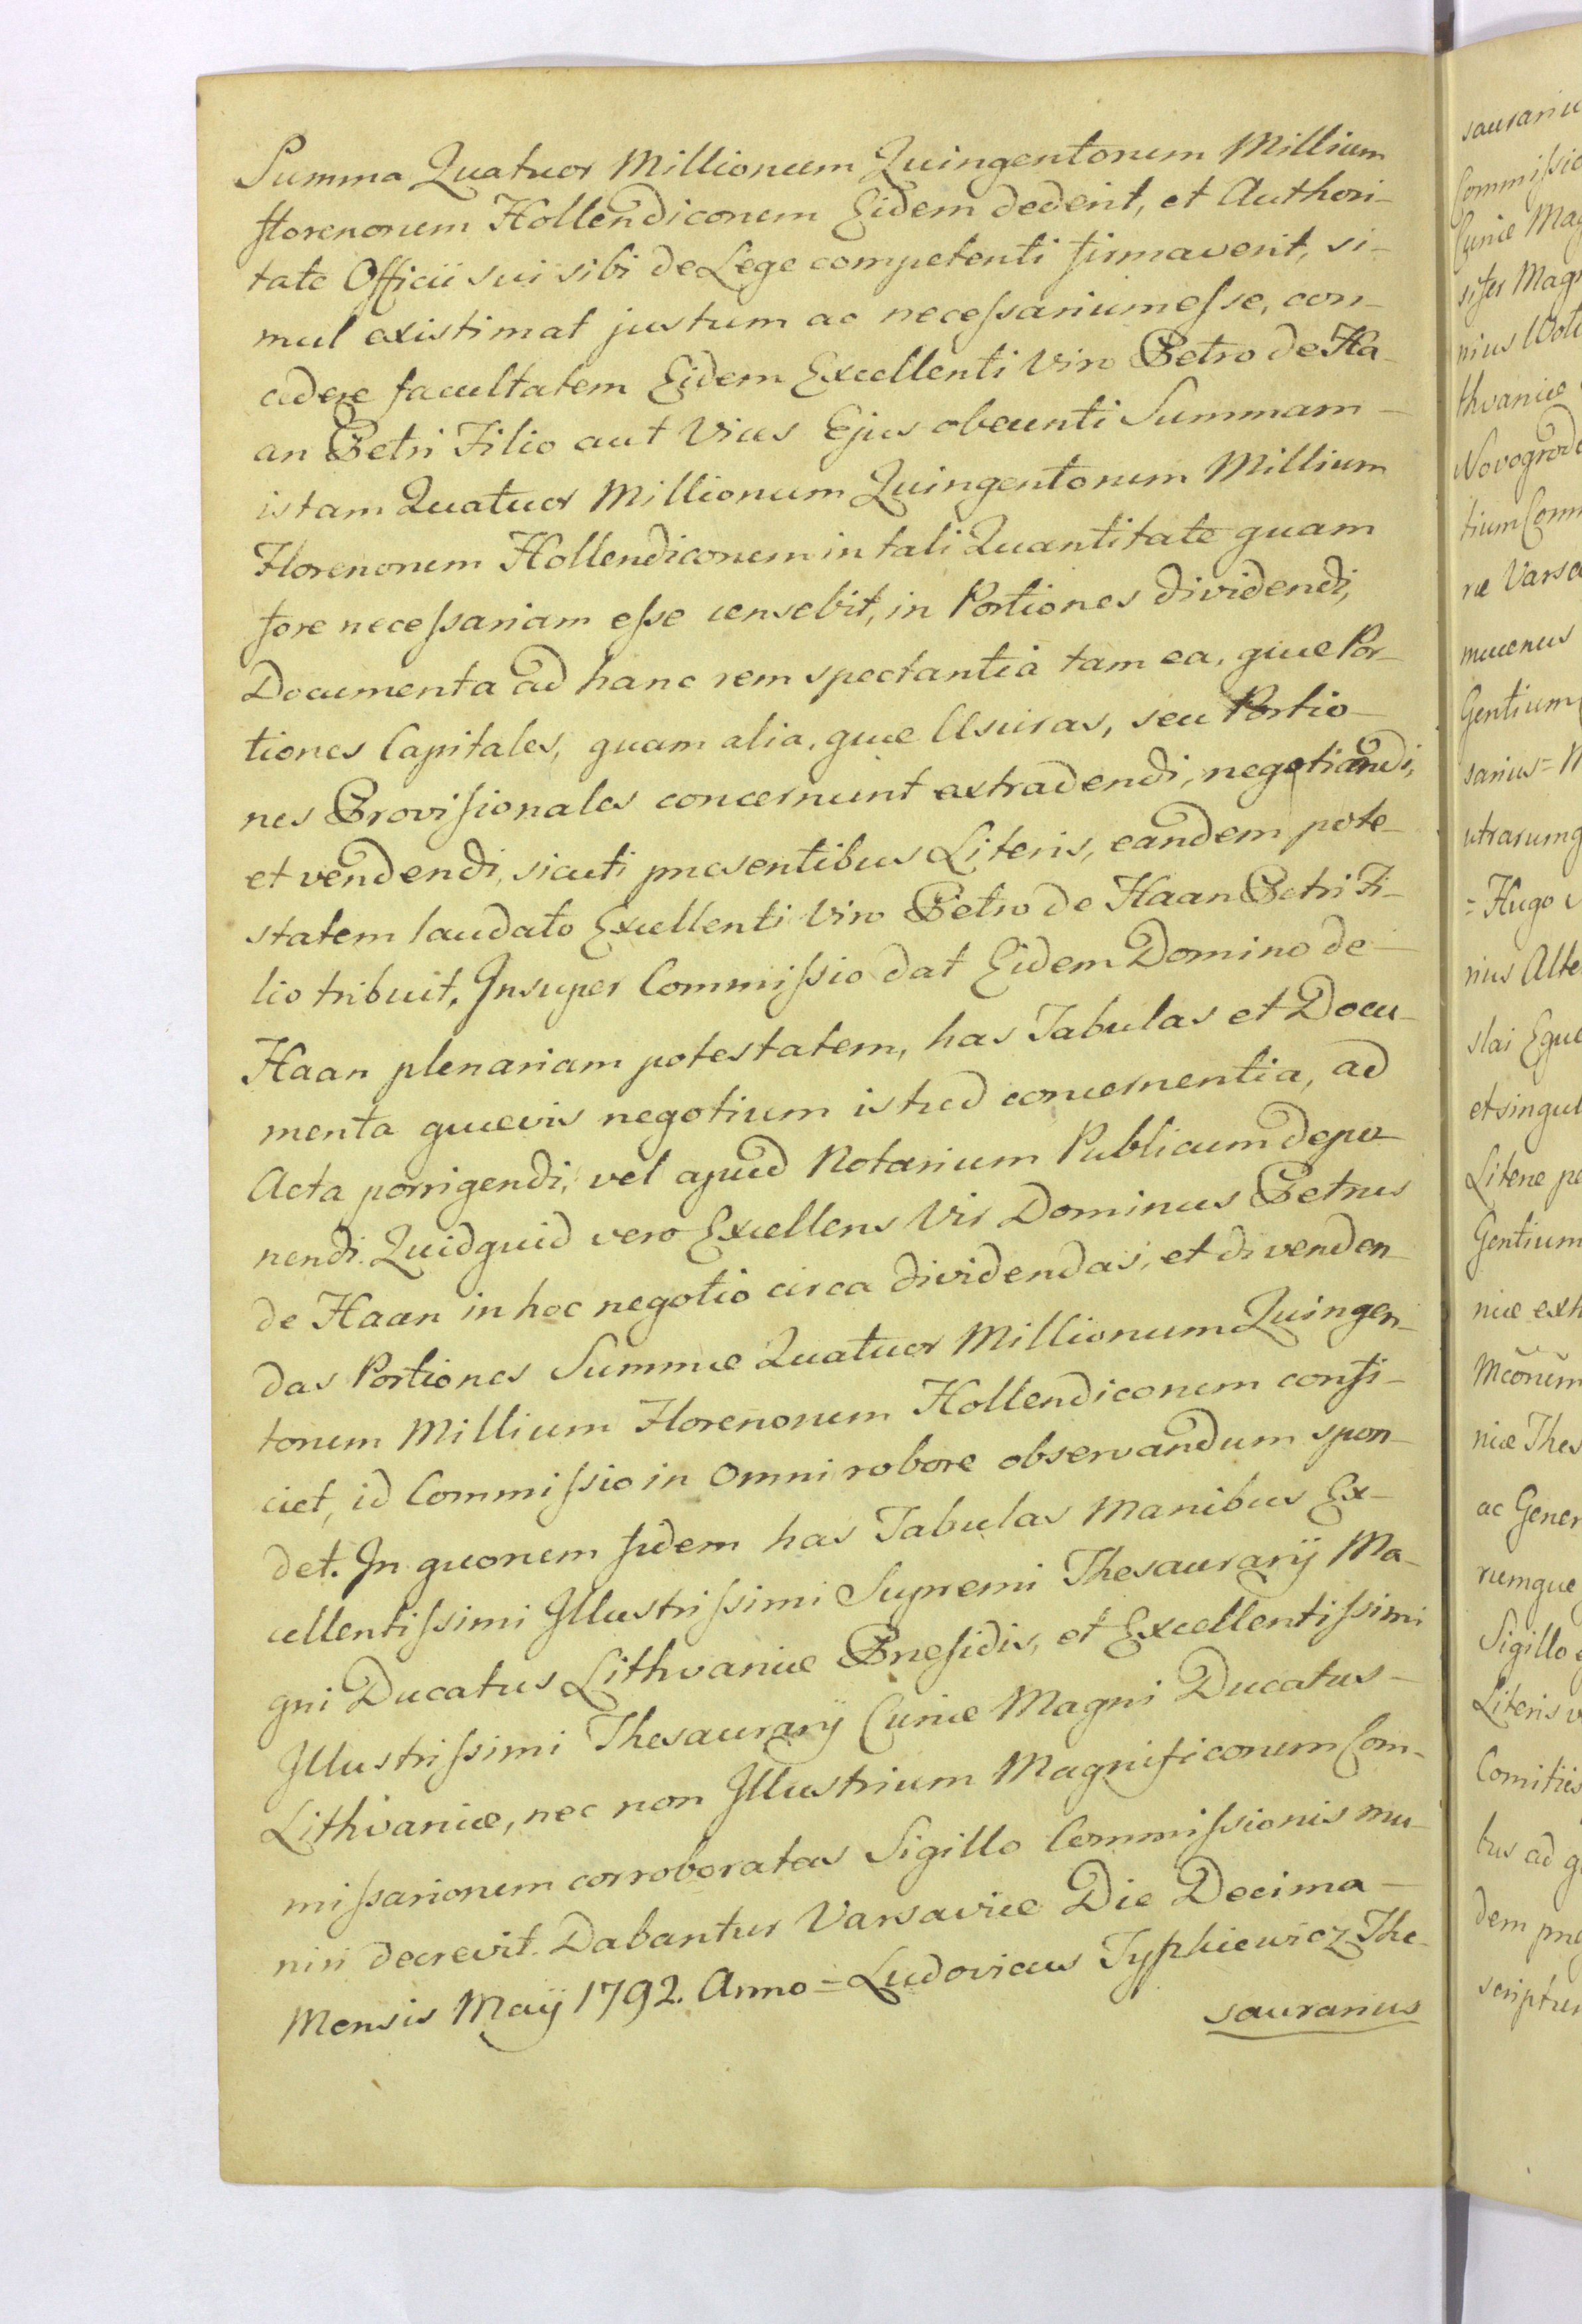 Summa Quatuor Millionum Quingentorum Millium
florenorum Hollendicorum Eidem dederit, et Authori-
tate Officii sui sibi de Lege competenti firmaverit, si-
mul existimat justum ac necessarium esse, con-
cedere facultatem Eidem Excellenti Viro Petro de Ha-
an Petri Filio aut Vices Ejus obeunti Summam -
istam Quatuor Millionum Quingentorum Millium
Florenorum Hollendicorum in tali Quantitate quam
fore necessariam esse censebit, in Portiones dividendi,
Documenta ad hanc rem spectantia tam ea, quæ Por-
tiones Capitales, quam alia, quæ Usuras, seu Portio-
nes Provisionales concernunt extradendi, negotiandi,
et vendendi, sicuti præsentibus Literis, eandem pote-
statem laudato Excellenti Viro Petro de Haan Petri Fi-
lio tribuit, Insuper Commissio dat Eidem Domino de -
Haan plenariam potestatem, has Tabulas et Docu-
menta quævis negotium istud concernentia, ad
Acta porrigendi, vel apud Notarium Publicum depo-
nendi. Quidquid vero Excellens Vir Dominus Petrus
de Haan in hoc negotio circa dividendas, et divenden-
das Portiones Summæ Quatuor Millionum Quingen-
torum Millium Florenorum Hollendicorum confi-
ciet, id Commissio in Omni robore observandum spon-
det. In quorum fidem has Tabulas Manibus Ex-
cellentissimi Illustrissimi Supremi Thesaurarij Ma-
gni Ducatus Lithvaniæ Præsidis, et Excellentissimi
Illustrissimi Thesaurarij Curiæ Magni Ducatus -
Lithvaniæ, nec non Illustrium Magnificorum Com-
missariorum corroboratas Sigillo Commissionis mu-
niri decrevit. Dabantur Varsaviæ Die Decima -
Mensis Maij 1792. Anno = Ludovicus Tyszkiewicz The-
saurarius
saurariu
Commissio
Curiæ Mag
siser Mag
nius Woł
thvaniæ
Novogrod
tium Com
ræ Varsa
mucenus
Gentium
sarius = M
utrarumq
= Hugo
rius Alte
slai Eque
et singul
Literæ pa
Gentium
niæ exh
Mcorum
niæ Thes
ac Gener
rumque
Sigillo
Literis v
Comitiis
bus ad
dem præ
scriptu